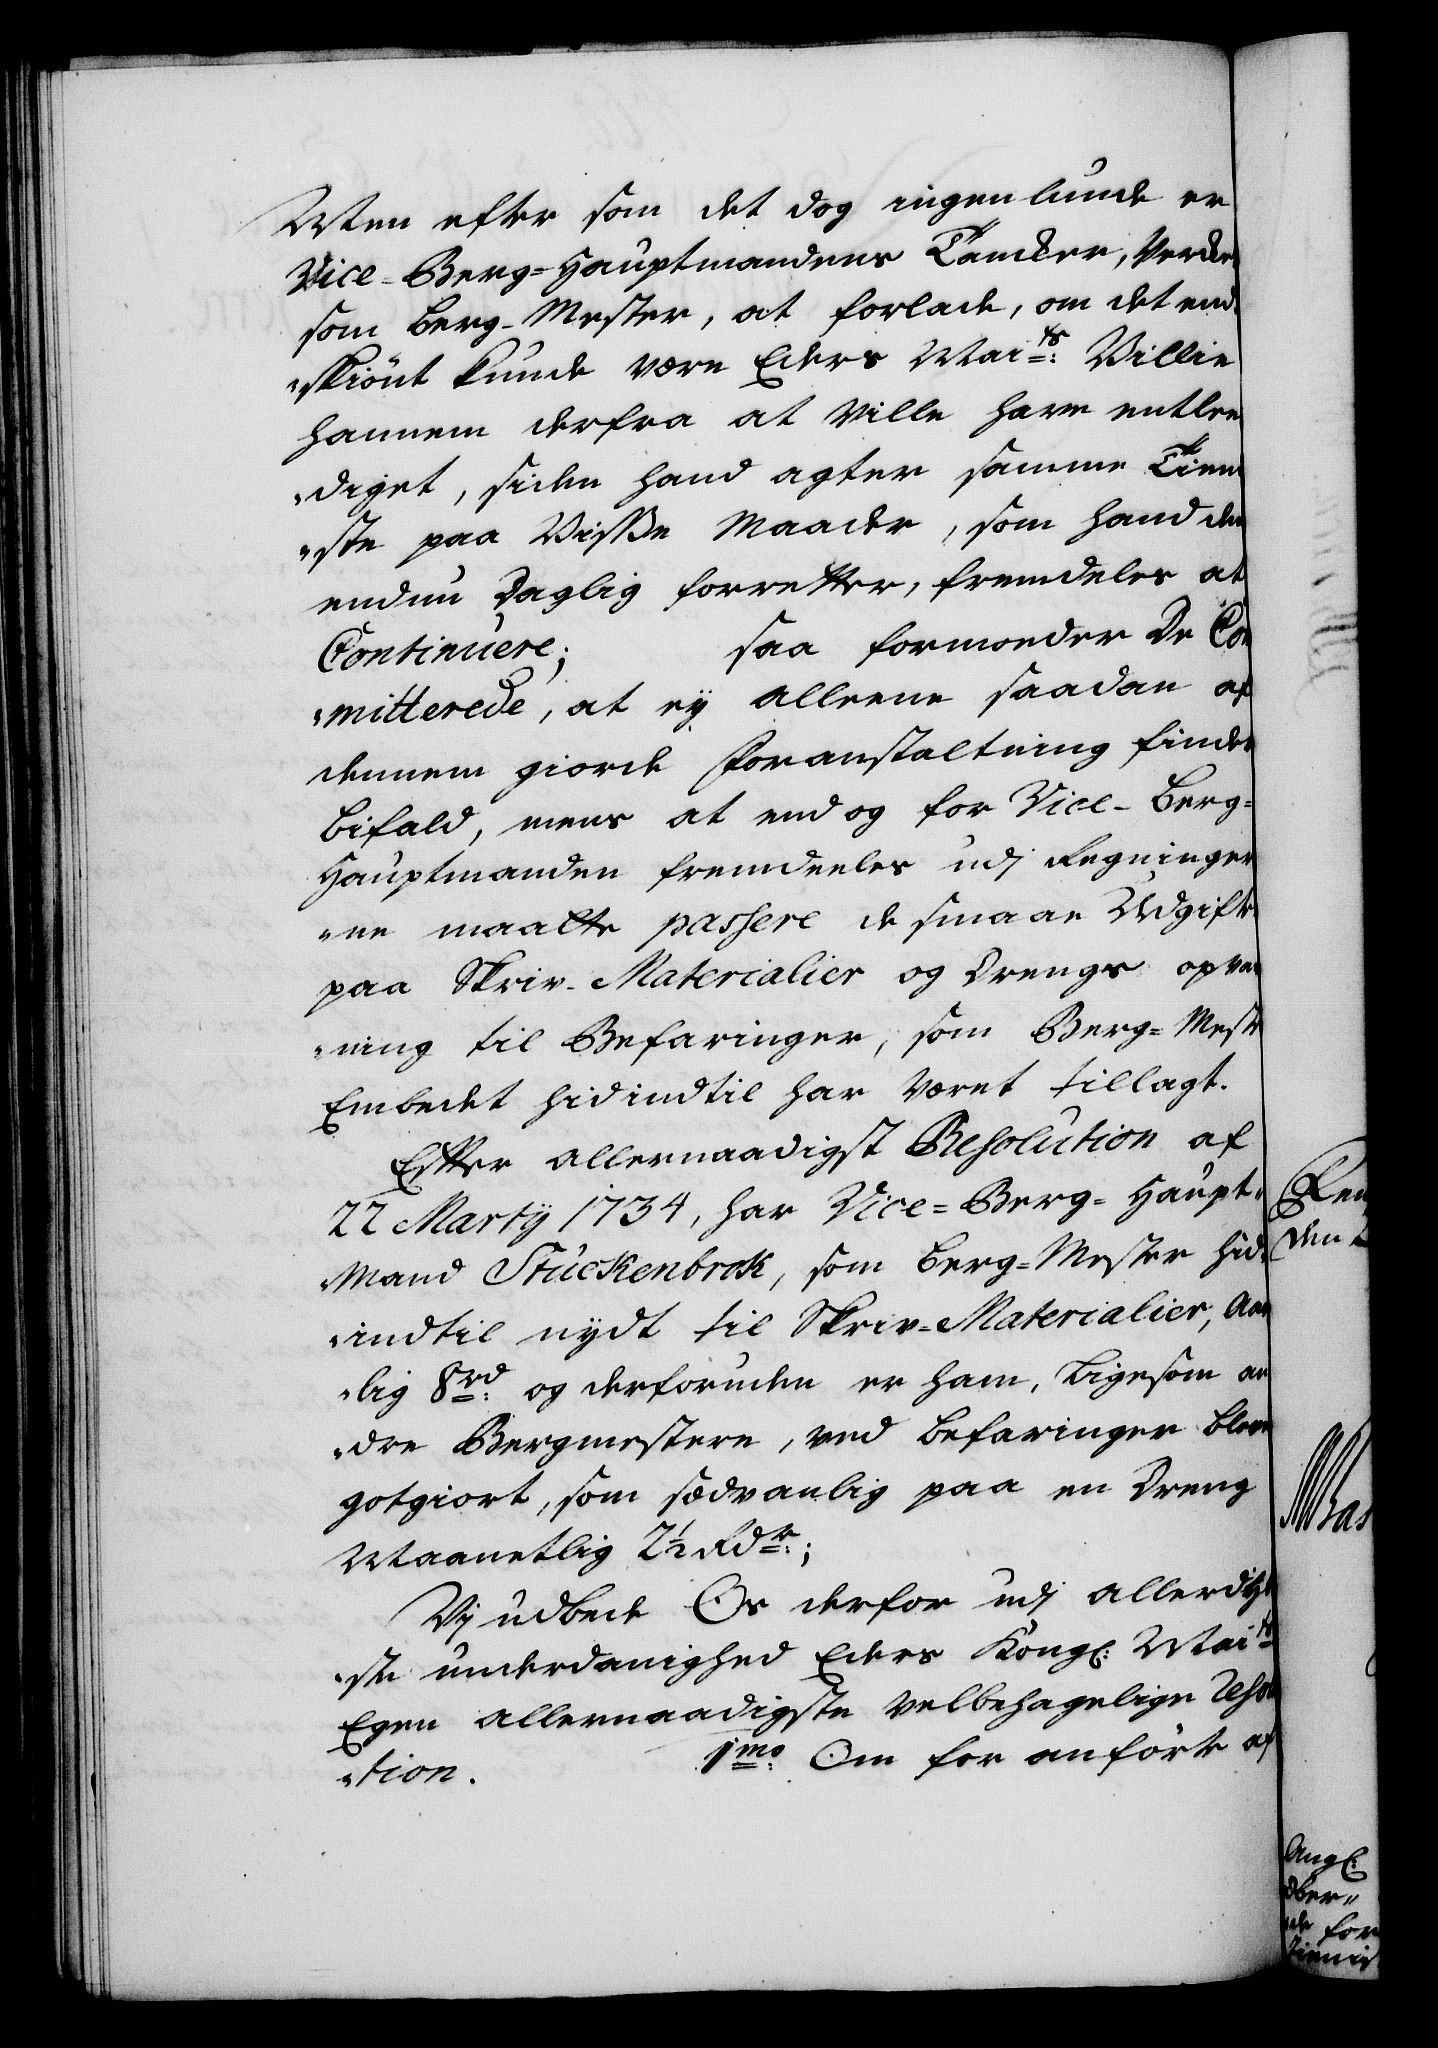 Men efter som det dog ingenlunde er
Vice-Berg-Hauptmandens Tancker, Verket
som Berg-Mester, at forlade, om det end
„skiönt kunde være Eders Maits: Villie
hannem derfra at Ville have entlee
„diget, siden hand agter samme Tiene
„ste paa Visse Maader, som hand den
endnu Daglig forretter, fremdeles at
Continuere; saa formoeder De Com
„mitterede, at ey alleene saadan af
dennem giorde Foranstaltning finder
bifald, mens at end og for Vice-Berg-
Hauptmanden fremdeeles udj Regninger
„ne maatte passere de smaae Udgifter
paa Skriv-Materialier og Drengs opva
„ning til Befaringer, som Berg-Mester
Embedet hidindtil har været tillagt.
Efter allernaadigst Resolution af
22 Martÿ 1734, har Vice-Berg-Haupt„
„Mand Stuckenbrok, som Berg-Mester hid„
„indtil nÿdt til Skriv-Materialier, Aar
„lig 8 rd: og derforuden er ham, ligesom an
„dre Bergmestere, ved befaringer bleven
gotgiort, som sædvanlig paa en Dreng
Maanetlig 2½ Rdr:;
Vj udbede Os derfor udj allerdÿbe
„ste underdanighed Eders Kongl: Maits
Egen allernaadigste velbehagelige Resolu
„tion. 1mo: Om for anförte af